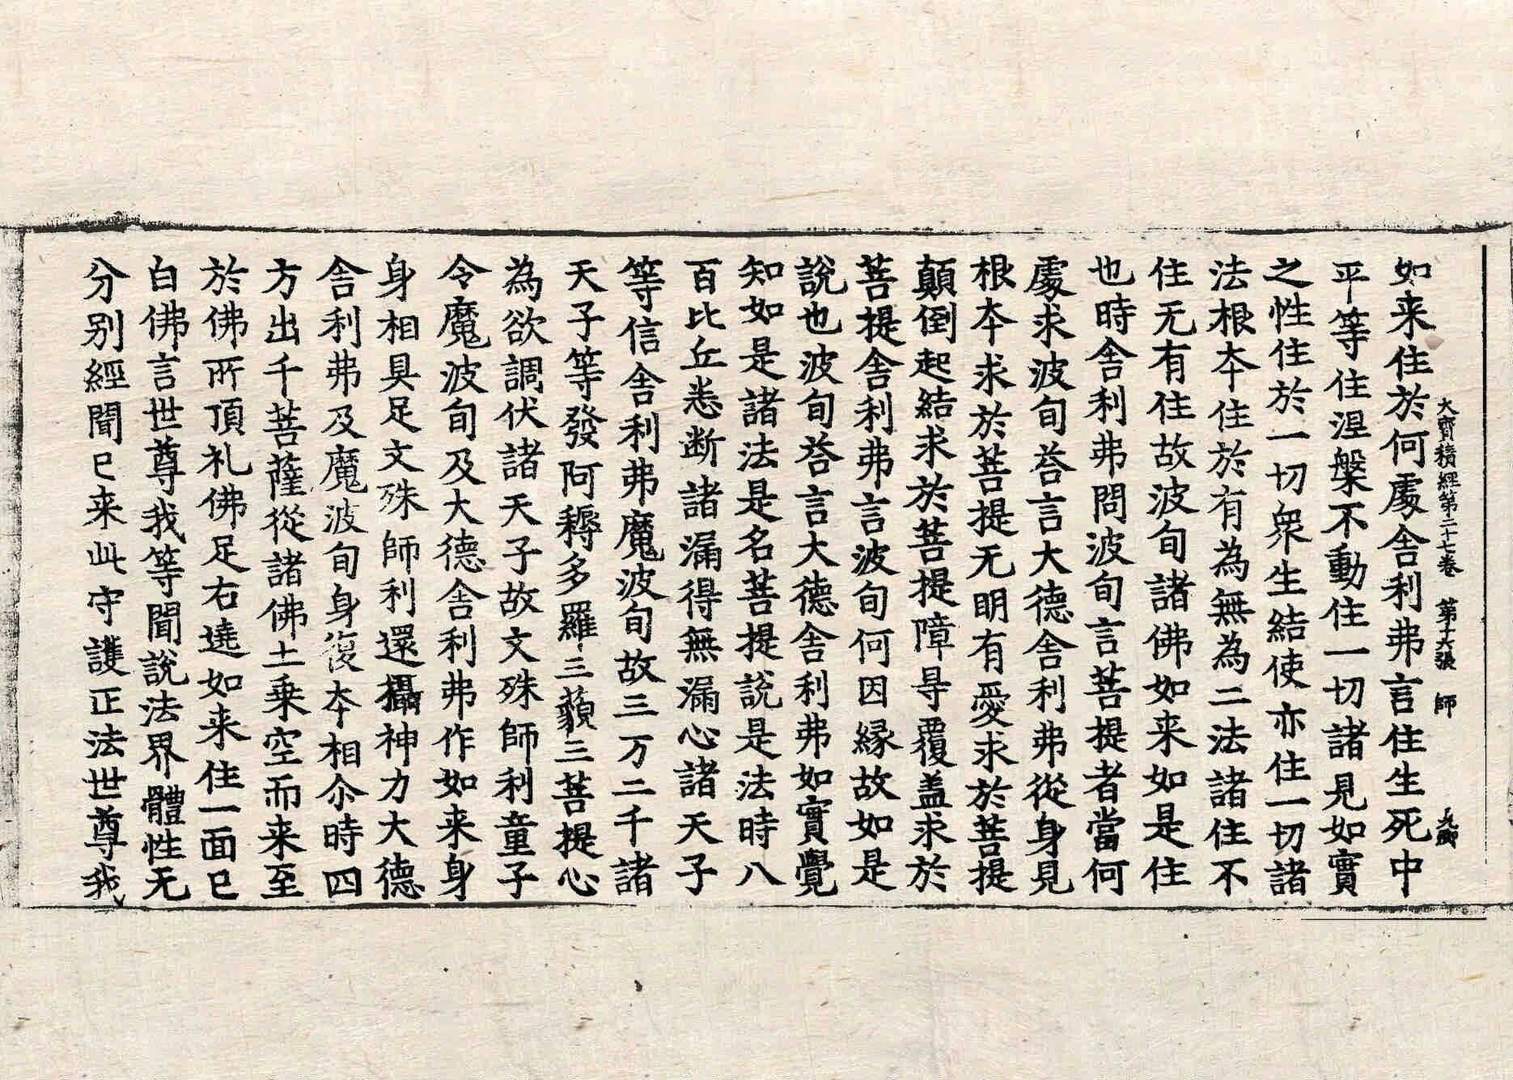 如来住於何處舍利弗言住生死中
大寳積經第二十七卷　第十六張　師
平等住涅槃不動住一切諸見如實
之性住於一切衆生結使亦住一切諸
法根夲住於有為無為二法諸住不
住无有住故波旬諸佛如来如是住
也時舍利弗問波旬言菩提者當何
處求波旬荅言大德舍利弗從身見
根夲求於菩提无明有愛求於菩提
顛倒起結求於菩提障㝵覆盖求於
菩提舍利弗言波旬何因緣故如是
說也波旬荅言大德舍利弗如實覺
知如是諸法是名菩提說是法時八
百比丘悉断諸漏得無漏心諸天子
等信舍利弗魔波旬故三万二千諸
天子等發阿耨多羅三藐三菩提心
為欲調伏諸天子故文殊師利童子
令魔波旬及大德舍利弗作如来身
身相具足文殊師利還攝神力大德
舍利弗及魔波旬身復夲相尒時四
方出千菩薩從諸佛土乗空而来至
於佛所頂礼佛足右遶如来住一面已
白佛言世尊我等聞說法界體性无
分别經聞已来此守護正法世尊我